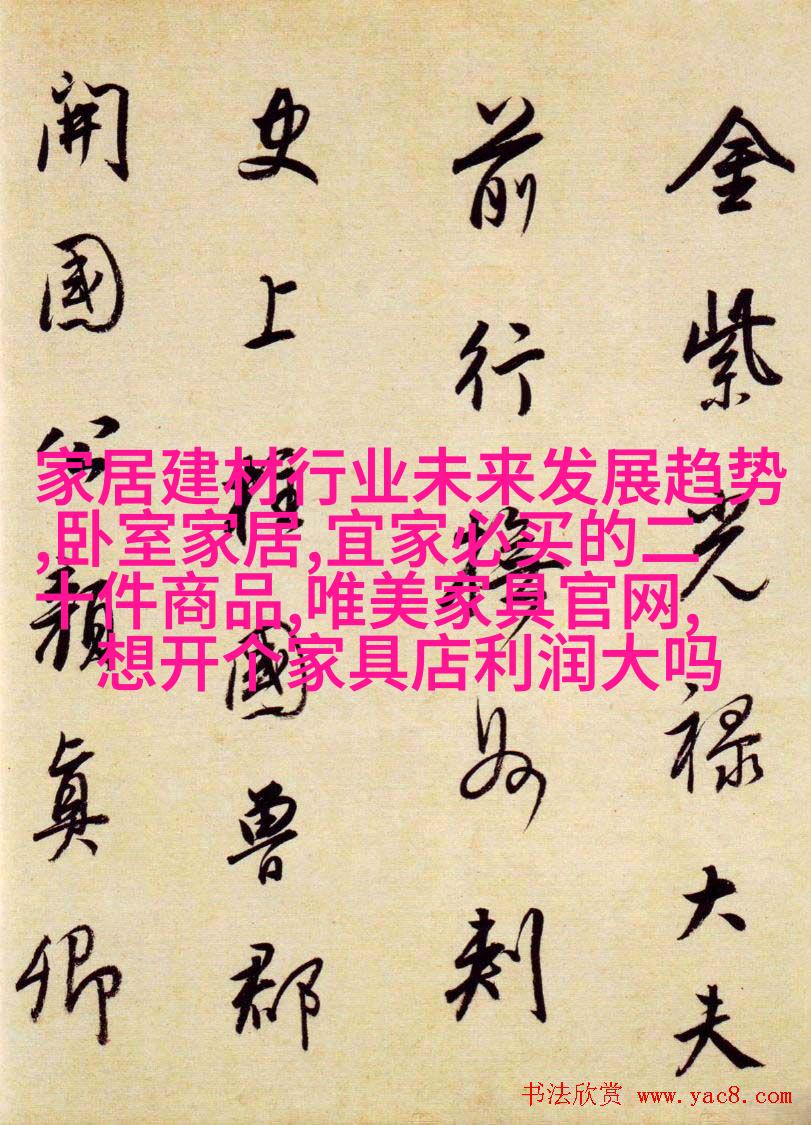 金紫光禄大夫
前行撫州刺
史上柱國魯郡
開國公顏真卿
家居建材行业未来发展趋势
,卧室家居,宜家必买的二
十件商品,唯美家具官网,
想开个家具店利润大吗
书法欣赏 www.yac8.com